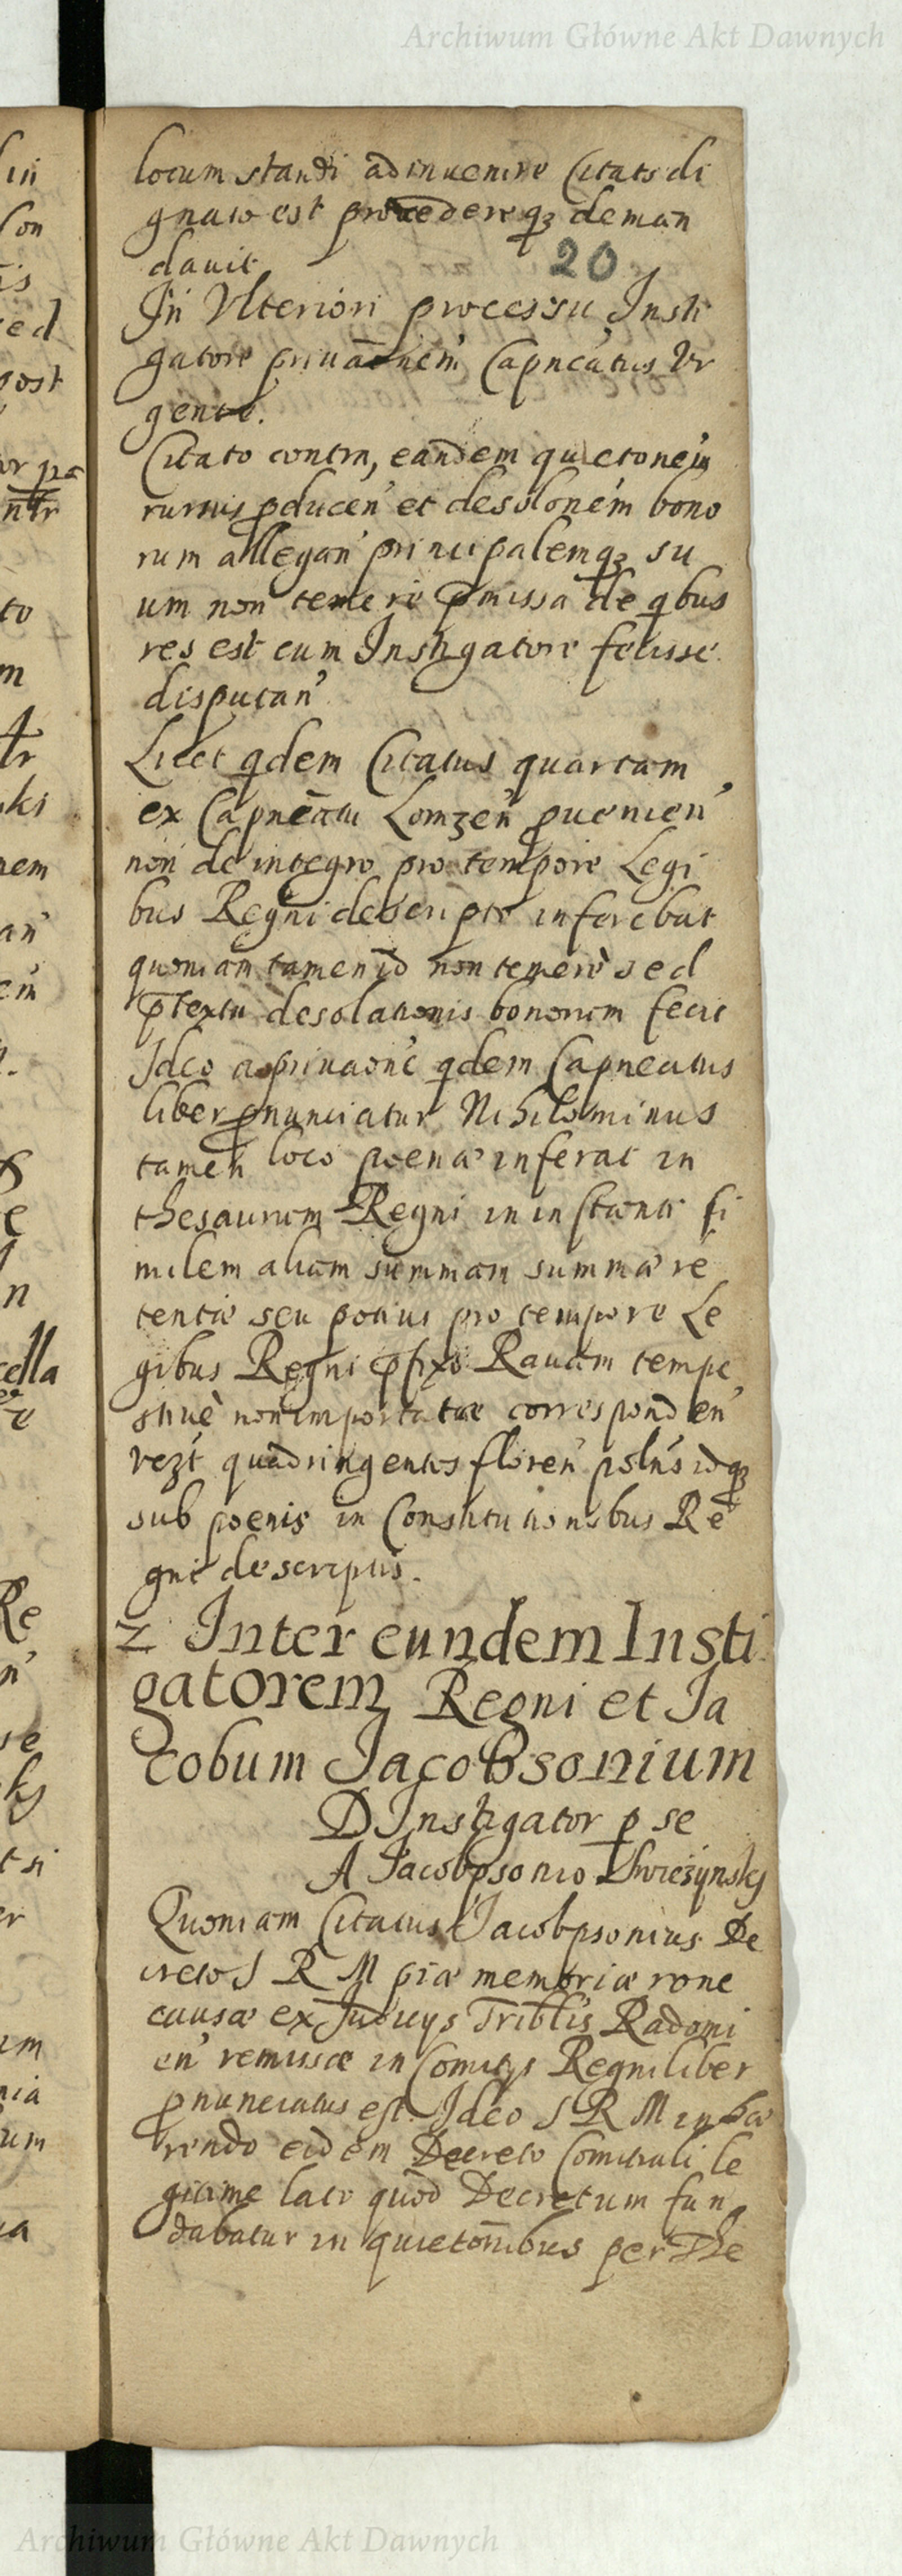 Archiwum Główne Akt Dawnych
locum standi adinuenire Citats di
gnato est procedereqz deman
dauit
20
In Vlteriori processu Insti
gatore priuaonem Capneatus Vr
gente.
Citato contra, eandem quietonem
rursus pducen et desolonem bono
rum allegan principalemqz su
um non temere pmissa de qbus
res est cum Instigatore fecisse
disputan
Licet qdem Citatus quartam
ex Capneatu Lomzen puenien
non de integro pro tempore Legi
bus Regni descripto inferebat
quoniam tamen id non temere sed
ptextu desolationis bonorum fecit
Ideo a priuaone qdem Capneatus
liber pnunciatur Nihilominus
tamen loco poenæ inferat in
thesaurum Regni in instanti si
milem aliam summam summæ re
tentæ seu potius pro tempore Le
gibus Regni pfixo Rauam tempe
stiuè non importatæ corresponden
vezt quadringentos floren polns idqz
sub poenis in Constitutionibus Re
gni descriptis.
2 Inter eundem Insti
gatorem Regni et Ja
cobum Jacobsonium
D Instigator p se
A Jacobpsonio Swiezÿnskj
Quoniam Citatus Jacobpsonius De
creto S R M piæ memoriæ rone
causæ ex Judicijs Triblis Radomi
en remissæ in Comitijs Regni liber
pnunciatus est. Ideo S R M inhæ
rendo eidem Decreto Comitiali le
gitime lato quod Decretum fun
dabatur in quietonibus per The
Archiwum Główne Akt Dawnych